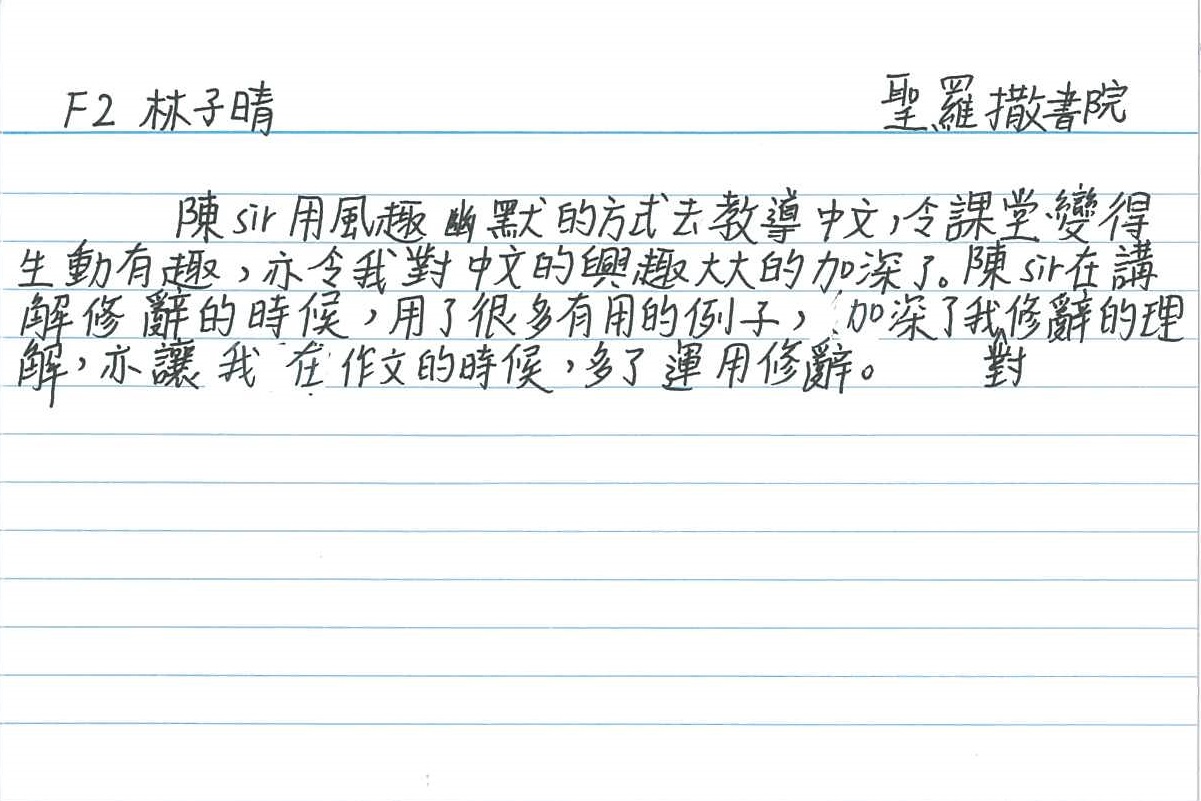 F2 林子晴 聖羅撒書院
陳sir用風趣幽默的方式去教導中文,令課堂變得
生動有趣,亦令我對中文的興趣大大的加深了。陳sir在講
解修辭的時候,用了很多有用的例子,加深了我對修辭的理
解,亦讓我在作文的時候,多了運用修辭。